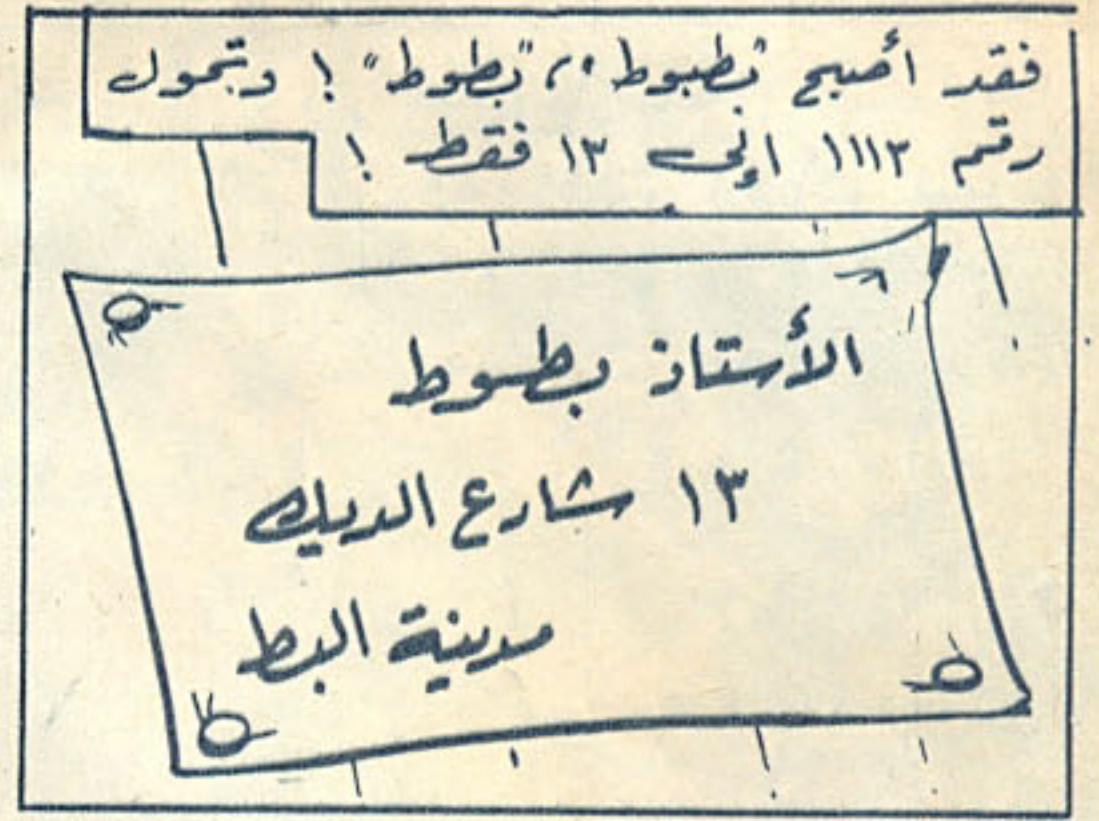 فقد أصبح "بطبوط"، "بطوط" ! وتحول
رقم ١١١٣ إلى ١٣ فقط !
الأستاذ بطوط
١٣ شارع الديك
مدينة البط